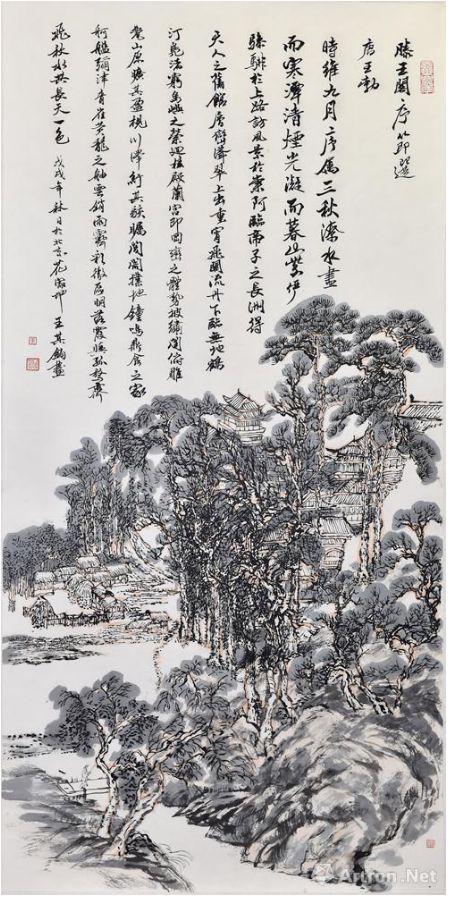 滕王閣序 節選
唐 王勃
時維九月序屬三秋潦水盡
而寒潭清煙光凝而暮山紫儼
驂騑於上路訪風景於崇阿臨帝子之長洲得
天人之舊館層巒聳翠上出重霄飛閣流丹下臨無地鶴
汀鳧渚窮島嶼之縈迴桂殿蘭宮即岡巒之體勢披繡闥俯雕
甍山原曠其盈視川澤紆其駭矚閭閻撲地鐘鳴鼎食之家
舸艦彌津青雀黃龍之舳雲銷雨霽彩徹區明落霞與孤鶩齊
飛秋水共長天一色 戊戌年秋日於北京 王其鈞畫
Artron.Net